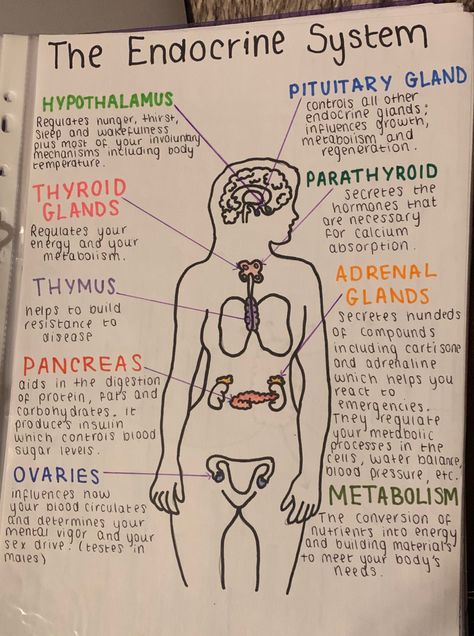 The Endocrine System
HYPOTHALAMUS
Regulates hunger, thirst,
sleep and wakefulness
plus most of your involuntary
mechanisms including body
temperature.
PITUITARY GLAND
controls all other
endocrine glands;
influences growth,
metabolism and
regeneration.
THYROID
GLANDS
Regulates your
energy and your
metabolism.
PARATHYROID
secretes the
hormones that
are necessary
for calcium
absorption.
THYMUS
helps to build
resistance to
disease
ADRENAL
GLANDS
secretes hundeds
of compounds
including cartisone
and adrenaline
which helps you
react to
emergencies.
They regulate
your metabolic
processes in the
cells, water balance,
blood pressure, etc.
PANCREAS
aids in the digestion
of protein, fats and
carbohydrates. it
produces insulin
which controls blood
sugar levels.
OVARIES
influences how
your blood circulates
and determines your
mental vigor and your
sex drive. (testes in
males)
METABOLISM
The conversion of
nutrients into energy
and building materials
to meet your body's
needs.